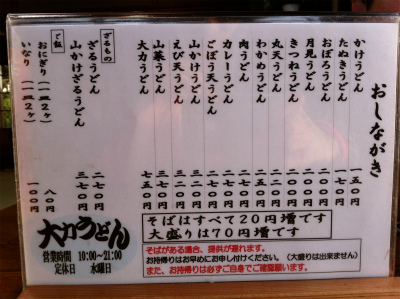 おしながき
かけうどん 一五〇円
たぬきうどん 一七〇円
おぼろうどん
月見うどん
きつねうどん
丸天うどん
わかめうどん
肉うどん
カレーうどん
ごぼう天うどん
山かけうどん
えび天うどん
山菜うどん
大力うどん 七五〇円
ざるもの
ざるうどん 二七〇円
山かけざるうどん 三七〇円
ご飯
おにぎり(一皿2ヶ) 八〇円
いなり(一皿2ヶ) 一〇〇円
大力うどん
営業時間 10:00〜21:00
定休日 水曜日
そばはすべて20円増です
大盛りは70円増です
そばがある場合、提供が遅れます。
お持帰りはお早めにお申し付けください。(大盛りは出来ません)
また、お持帰りは必ずご自身でご確認願います。